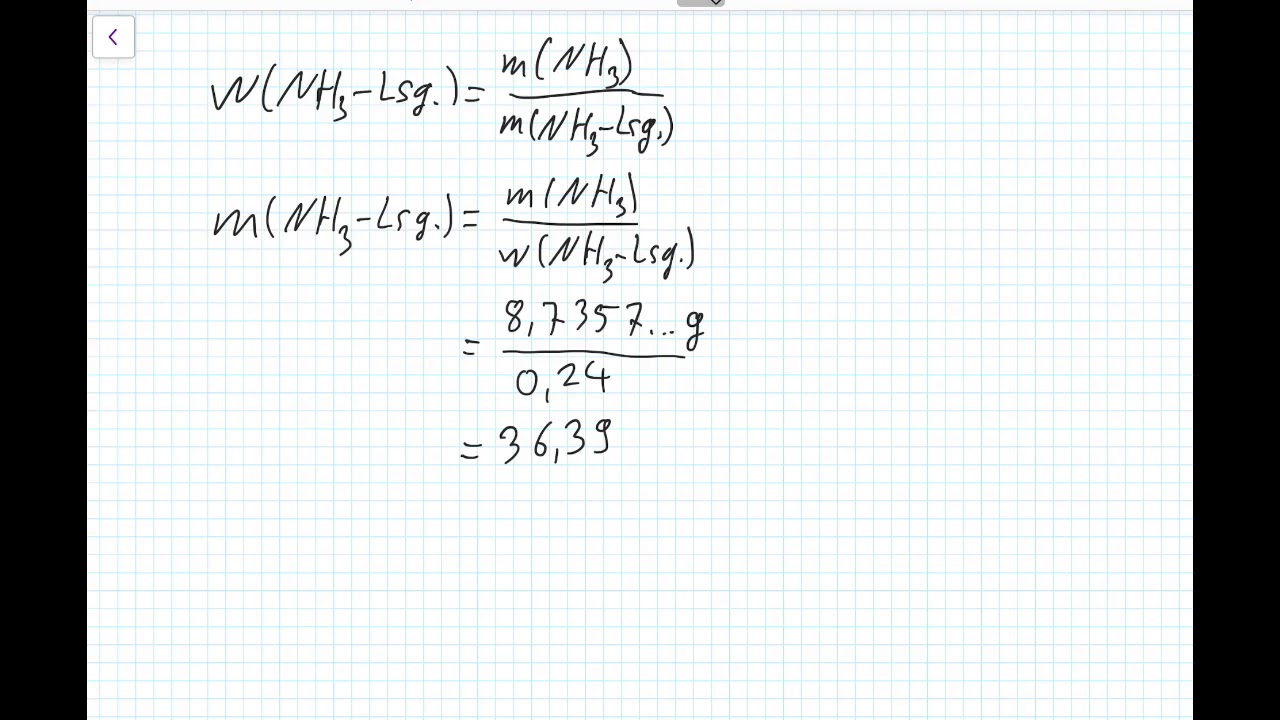 w(NH₃-Lsg.) = m(NH₃) / m(NH₃-Lsg.)
m(NH₃-Lsg.) = m(NH₃) / w(NH₃-Lsg.)
= 8,7357...g / 0,24
= 36,39